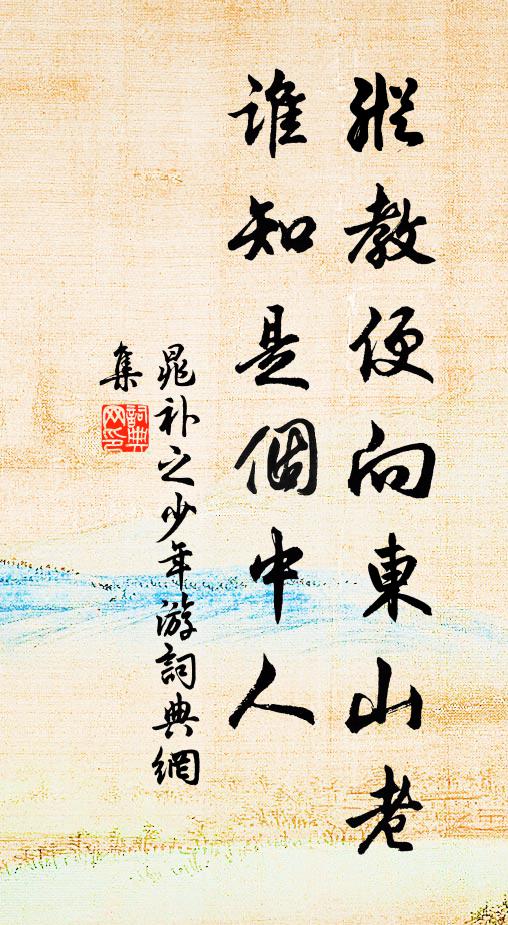 縱教便向東山老
誰知是個中人
晁补之少年游詞典網
集
詞典
网印